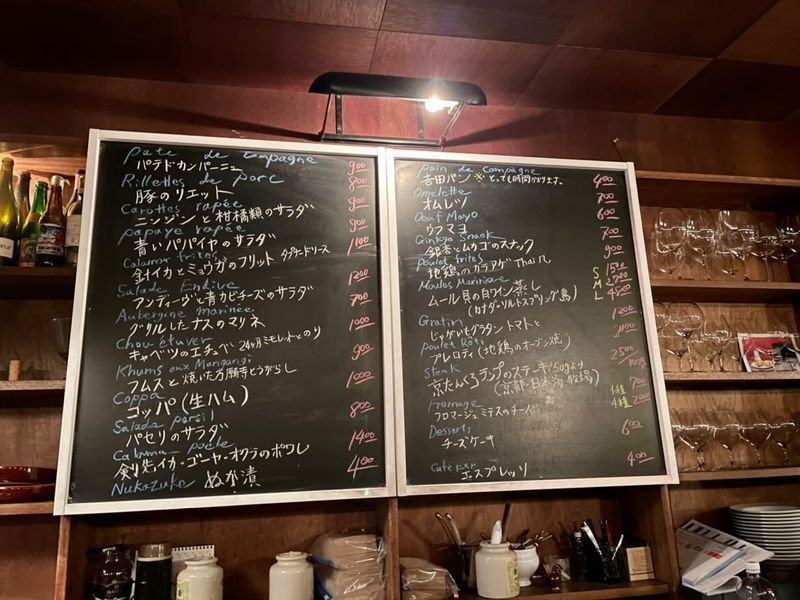 Pate de campagne
パテドカンパーニュ 900
Rillettes de porc 800
豚のリエット
Carottes rapée 900
ニンジンと柑橘類のサラダ
papaye rapée 900
青いパパイヤのサラダ
Calamar frites 1100
針イカとミョウガのフリット タプナードソース
Salade Endive 1200
アンディーヴと青カビチーズのサラダ
Aubergine marinée 700
グリルしたナスのマリネ
Chou étuver 1000
キャベツのエチュベ 24ヶ月ミモレットとのり
Khums aux Mangangi 900
フムスと焼いた万願寺とうがらし
Coppa 1000
コッパ(生ハム)
Salada persil 800
パセリのサラダ
1400
剣先イカ・ゴーヤ・オクラのポワレ
Nukazuke ぬか漬 400
Pain de Campagne
吉田パン ※とっても時間かかります。 400
Omelette 700
オムレツ
Oeuf Mayo 600
ウフマヨ
Ginkgo Snack 700
銀杏とムカゴのスナック
poulet frites 900
地鶏のカラアゲ Thai風
Moules Mariniare S 1500
ムール貝の白ワイン蒸し M
(カナダ・ソルトスプリング島) L 4800
Gratin 1200
じゃがいもグラタン トマトと
poulet Rôti
プレロティ(地鶏のオーブン焼)
Steak 2500
京たんくろランプのステーキ 150gより
(京都・日本海牧場)
Fromage 1種 700
フロマージュ ミテスのチーズ 4種 2000
Desserts 600
チーズケーキ
Café exp 400
エスプレッソ